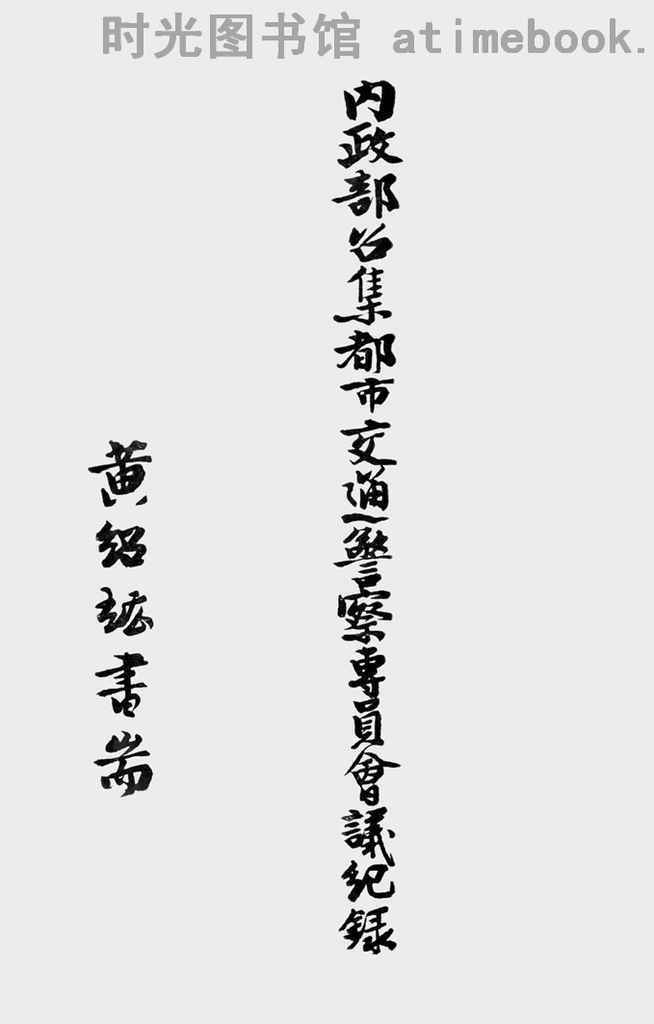 时光图书馆 atimebook.
内政部召集都市交通警察專員會議紀録
黄紹竑書耑